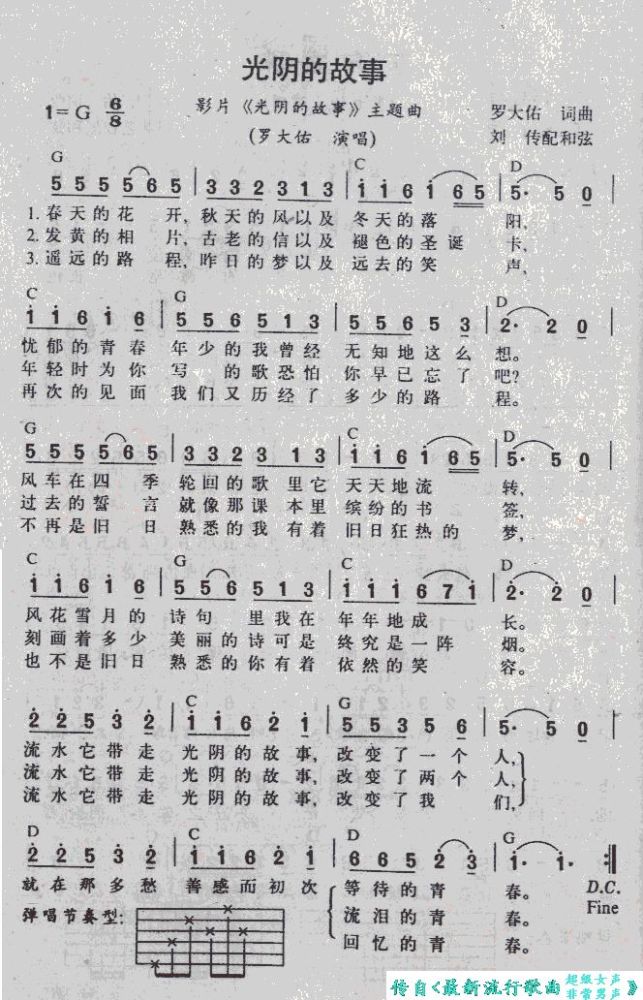 光阴的故事
1=G 6/8
影片《光阴的故事》主题曲
罗大佑 词曲
(罗大佑 演唱)
刘 传配和弦
G C D
5 5 5 5 6 5 | 3 3 2 3 1 3 | i i 6 i 6 5 | 5· 5 0 |
1. 春天的花 开, 秋天的风以及 冬天的落 阳,
2. 发黄的相 片, 古老的信以及 褪色的圣诞 卡,
3. 遥远的路 程, 昨日的梦以及 远去的笑 声,
C G D
i i 6 i 6 | 5 5 6 5 1 3 | 5 5 6 5 3 | 2· 2 0 |
忧郁的青春 年少的我曾经 无知地这么 想。
年轻时为你 写 的歌恐怕 你早已忘了 吧?
再次的见面 我们又历经了 多少的路 程。
G C D
5 5 5 5 6 5 | 3 3 2 3 1 3 | i i 6 i 6 5 | 5· 5 0 |
风车在四 季 轮回的歌 里它 天天地流 转,
过去的誓 言 就像那课 本里 缤纷的书 签,
不再是旧 日 熟悉的我 有着 旧日狂热的 梦,
C G C D
i i 6 i 6 | 5 5 6 5 1 3 | i i i 6 7 i | 2· 2 0 |
风花雪月的 诗句 里我在 年年地成 长。
刻画着多少 美丽的诗可是 终究是一阵 烟。
也不是旧日 熟悉的你有着 依然的笑 容。
D C G
2 2 5 3 2 | i i 6 2 i | 5 5 3 5 6 | 5· 5 0 |
流水它带走 光阴的故事, 改变了一个 人,
流水它带走 光阴的故事, 改变了两个 人,
流水它带走 光阴的故事, 改变了我 们,
D C D G
2 2 5 3 2 | i i 6 2 i | 6 6 5 2 3 | i· i· :||
就在那多愁 善感而初次 等待的青 春。 D.C.
弹唱节奏型: 流泪的青 春。 Fine
回忆的青 春。
传自《最新流行歌曲 超级女声 非常男声 》